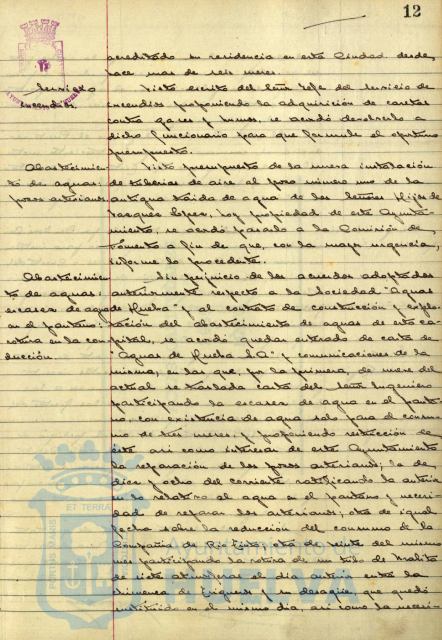 12
acreditado su residencia en esta Ciudad desde,
hace mas de seis meses.
Servicio
incendios.
Visto escrito del Señor Jefe del servicio de
incendios proponiendo la adquisición de caretas
contra gases y humos, se acordó devolverlo a
dicho funcionario para que formule el oportuno
presupuesto.
Abastecimien
to de aguas:
pozos artesianos.
Visto presupuesto de la nueva instalación
de tuberias de aire al pozo número uno de la
antigua traida de agua de los Señores Hijos de
Vazquez Lopez, hoy propiedad de este Ayunta-
miento, se acordó pasarlo a la Comisión de,
Fomento a fin de que, con la mayor urgencia,
informe lo procedente.
Abastecimien
to de aguas:
escasez de agua
en el pantano:
rotura en la con
ducción.
Sin perjuicio de los acuerdos adoptados
anteriormente respecto a la Sociedad "Aguas
de Huelva" y al contrato de construcción y explo-
tación del abastecimiento de aguas de esta ca-
pital, se acordó quedar enterado de carta de
"Aguas de Huelva S.A." y comunicaciones de la
misma, en las que, por la primera, de nueve del
actual se traslada carta del Señor Ingeniero
participando la escasez de agua en el panta-
no, con existencia de agua solo para el consu-
mo de tres meses, y proponiendo restricción de
éste asi como interesar de este Ayuntamiento
la reparación de los pozos artesianos; la de
diez y ocho del corriente ratificando la anterior
en lo relativo al agua en el pantano y necesi-
dad de reparar los artesianos; otra de igual
fecha sobre la reducción del consumo de la
Compañia de Rio Tinto; otra de veinte del mismo
mes participando la rotura de un tubo de Uralita
de siete atmosferas el día anterior entre la
chimenea de y su desagüe, que quedó
sustituido en el mismo día, asi como la necesi
ET TERRA
PORTUS MARIS
Ayuntamiento de
HUELVA